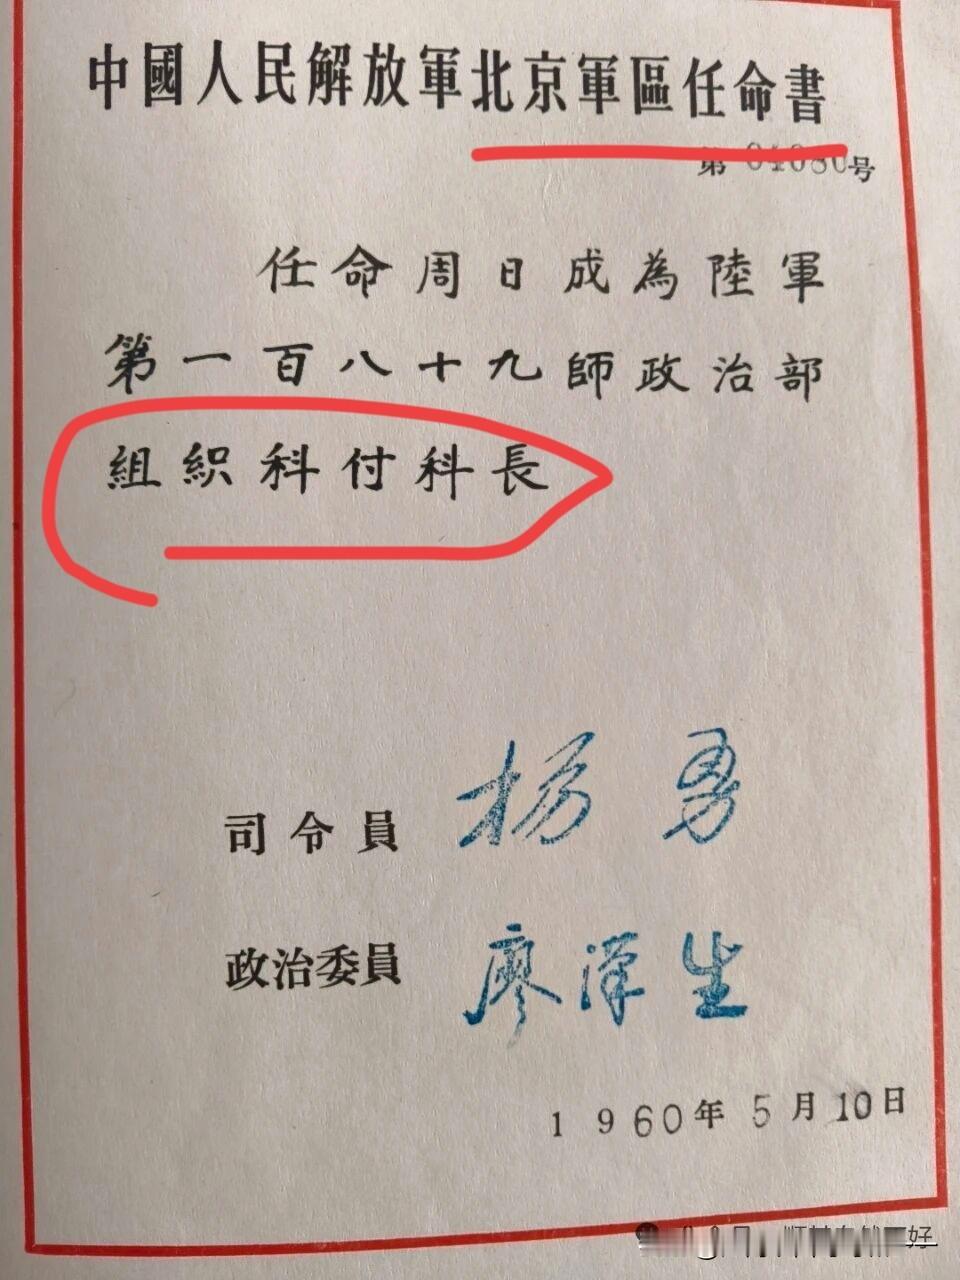 中國人民解放軍北京軍區任命書
第 04080 号
任命周日成為陸軍
第一百八十九師政治部
組織科付科長
司令員 杨勇
政治委員 廖漢生
1960年5月10日
好